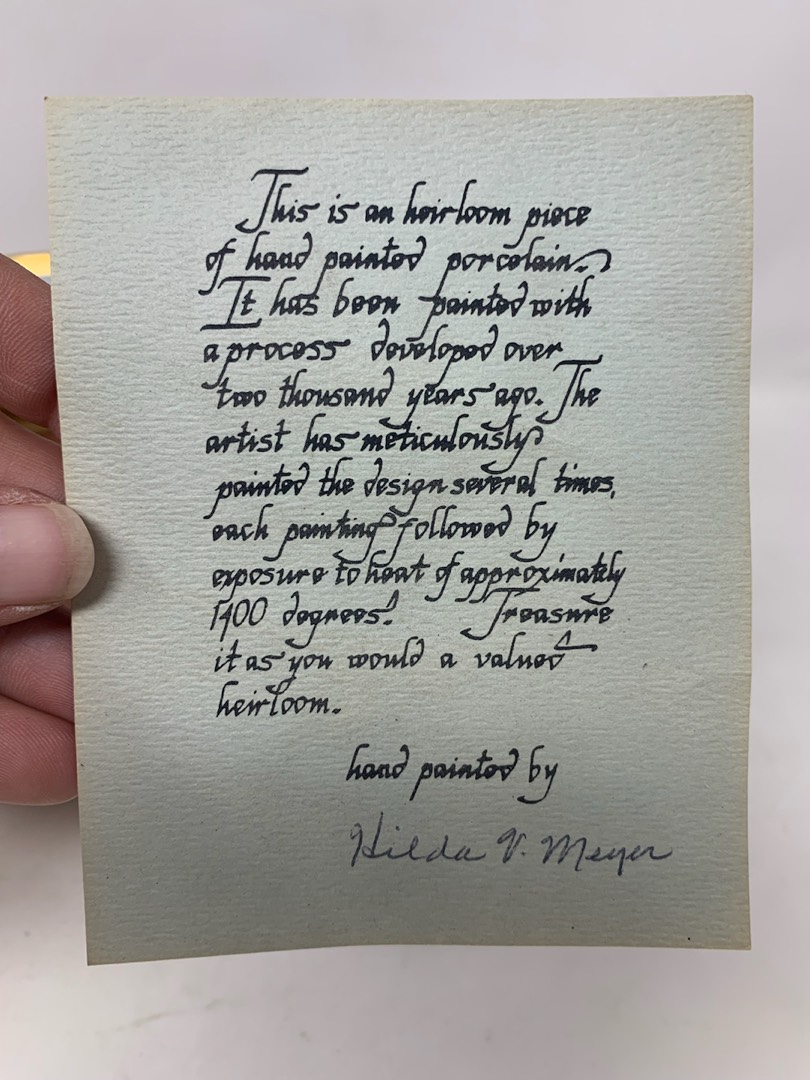 This is an heirloom piece
of hand painted porcelain.
It has been painted with
a process developed over
two thousand years ago. The
artist has meticulously
painted the design several times,
each painting followed by
exposure to heat of approximately
1400 degrees. Treasure
it as you would a valued
heirloom.
hand painted by
Hilda V. Meyer